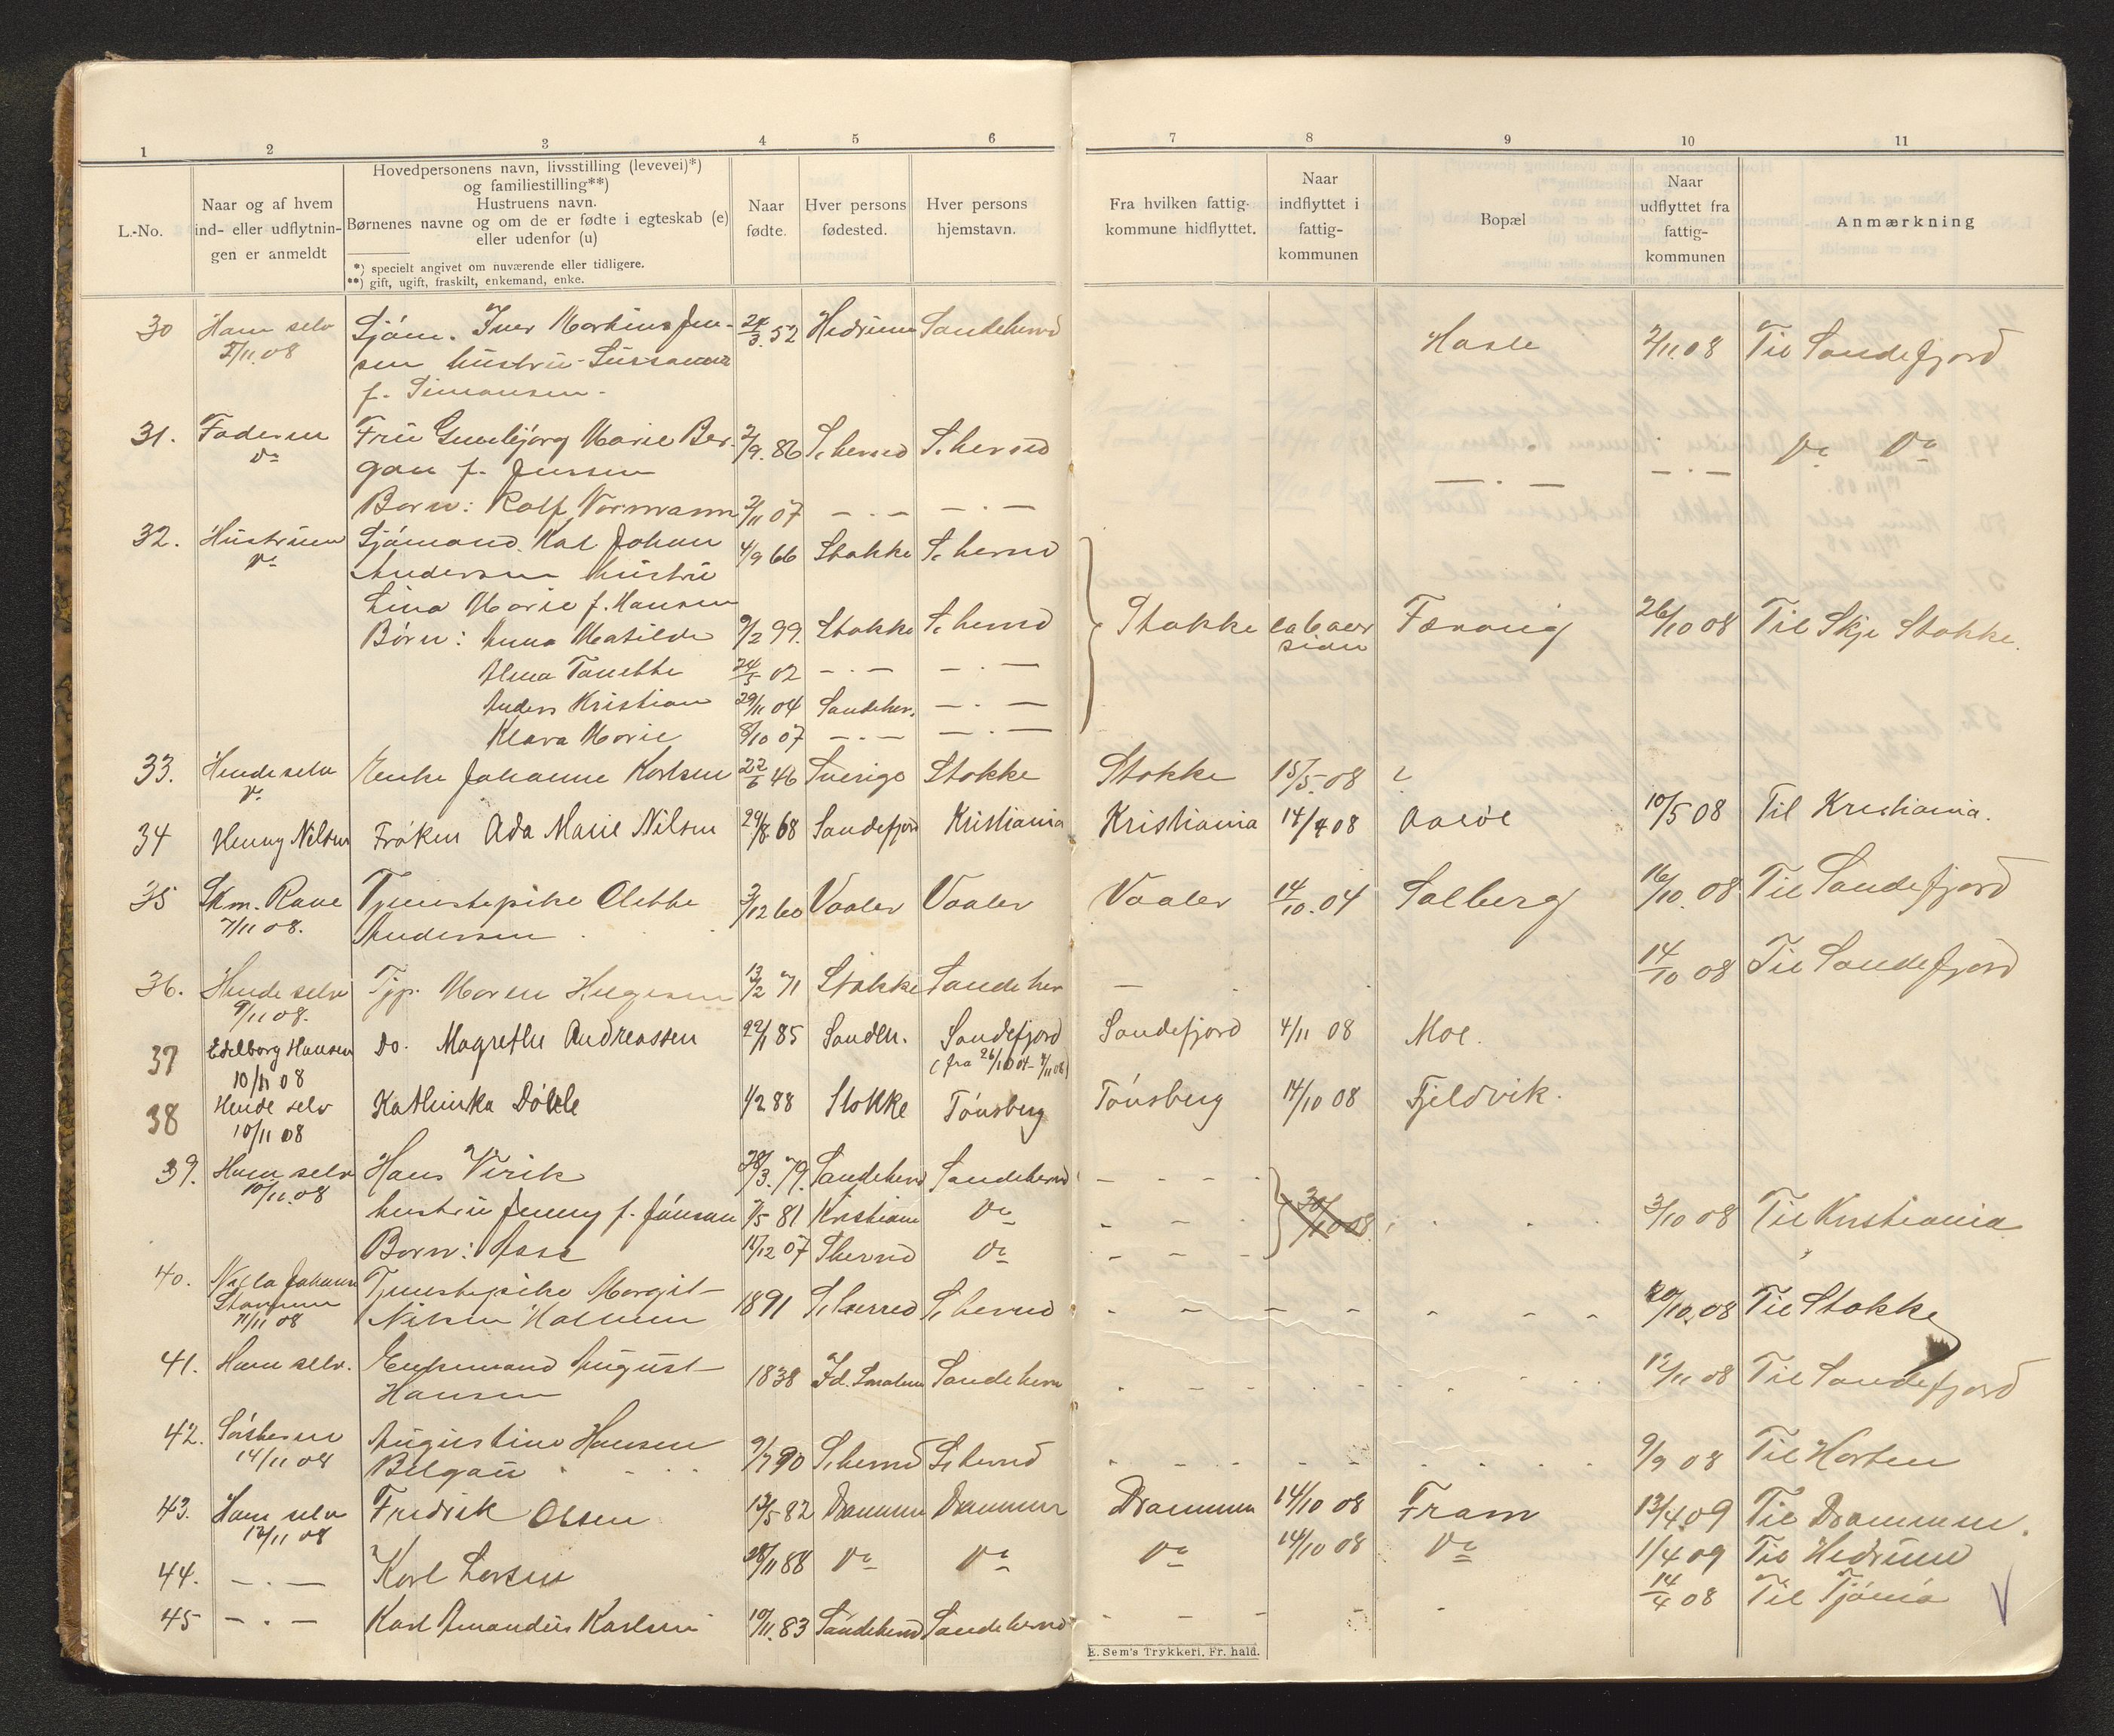 1 2 3 4 5 6 7 8 9 10 11
L.-No.
Naar og af hvem
ind- eller udflytnin-
gen er anmeldt
Hovedpersonens navn, livsstilling (levevei)*)
og familiestilling**)
Hustruens navn.
Børnenes navne og om de er fødte i egteskab (e)
eller udenfor (u)
*) specielt angivet om nuværende eller tidligere.
**) gift, ugift, fraskilt, enkemand, enke.
Naar
fødte.
Hver persons
fødested.
Hver persons
hjemstavn.
Fra hvilken fattig-
kommune hidflyttet.
Naar
indflyttet i
fattig-
kommunen
Bopæl
Naar
udflyttet fra
fattig-
kommunen
Anmærkning
30 Ham selv Sjøm. Iver Martinus Jen- 24/3 52 Hedrum Sandeherred Hasle 2/11 08 Til Sandefjord
2/11 08 sen hustru Sussanna
f. Simonsen
31. Faderen Fru Gunbjørg Marie Ber- 2/9. 86 S. herred S. herred Do Do
Do gan f. Jensen
Barn: Rolf Normann 2/11 07 — . — — . —
32. Hustruen Sjømand Karl Johan 4/9 66 Stokke S. herred
Do Andersen hustru
Lina Marie f. Hansen
Børn: Anna Matilde 9/2 99. Stokke S. herred Stokke 26/10 08 Til Skje Stokke.
Alma Tanette 24/5 02 — . — — . —
Anders Kristian 29/11 04 Sandeher. — . —
Klara Marie 8/10 07 — . — — . —
33. Hende selv Enke Johanne Karlsen 22/6 46 Sverige Stokke Stokke 15/5. 08 ?
Do
34 Henny Nilsen Frøken Ada Marie Nilsen 29/8 68 Sandefjord Kristiania Kristiania 14/4 08 Aasøe 10/5 08 Til Kristiania.
35 Skm. Rave Tjenestepike Olette 3/12 60 Vaaler Vaaler Vaaler 14/10. 04 Solberg 16/10. 08 Til Sandefjord
7/11 08. Andersen
36. Hende selv Tjp. Maren 13/2 71 Stokke Sandeher — 14/10 08 Til Sandefjord
9/11 08.
37 Edelborg Hansen Do. Magrethe Andreassen 22/1 85 Sandeh. Sandefjord Sandefjord 4/11 08 Moe.
10/11 08 (fra 26/10 04 - 4/11 08)
38 Hende selv Kathinka Døhle 1/2 88 Stokke Tønsberg Tønsberg 14/10 08 Fjeldvik.
10/11 08
39. Ham selv Hans Virik 28/3. 79. Sandeherred Sandeherred
10/11. 08 hustru Jenny f. Jónsen 7/5 81 Kristiania Do 30/10 08 3/10 08 Til Kristiania
Barn: Aase 11/12 07 Sherred Do
40. Johansen Tjenestepike Margit
Nilsen 1891 S. herred S. herred 20/10. 08 Til Stokke
11/11 08
41. Ham selv. Enkemand August 1838 Sandeherred 12/11 08 Til Sandefjord
Hansen
42. Søsteren Augustine Hansen 9/7 90 S. herred S. herred 9/9 08 Til Horten
14/11 08
43. Ham selv Fredrik Olsen 12/5 82 Drammen Drammen Drammen 14/10 08 Fram 13/4 09 Til Drammen.
12/11 08
44. — . — Karl Larsen 28/11 88 Do Do Do 14/10 08 Do 1/4 09 Til Hedrum
45 — . — Karl Amandus Karlsen 10/11. 83 Sandeherred Sandeherred 14/4 08 Til Tjømø V
E. Sem's Trykkeri. Fr. hald.